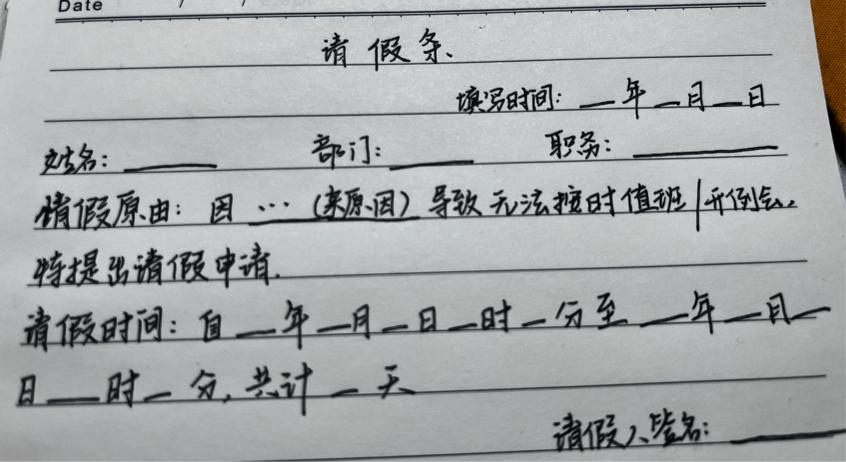 Date / /
请假条
填写时间: __年__月__日
姓名: ____ 部门: ____ 职务: ____
请假原由: 因 … (某原因) 导致无法按时值班/开例会,
特提出请假申请.
请假时间: 自__年__月__日__时__分至__年__月__
日__时__分, 共计__天
请假人签名: ____